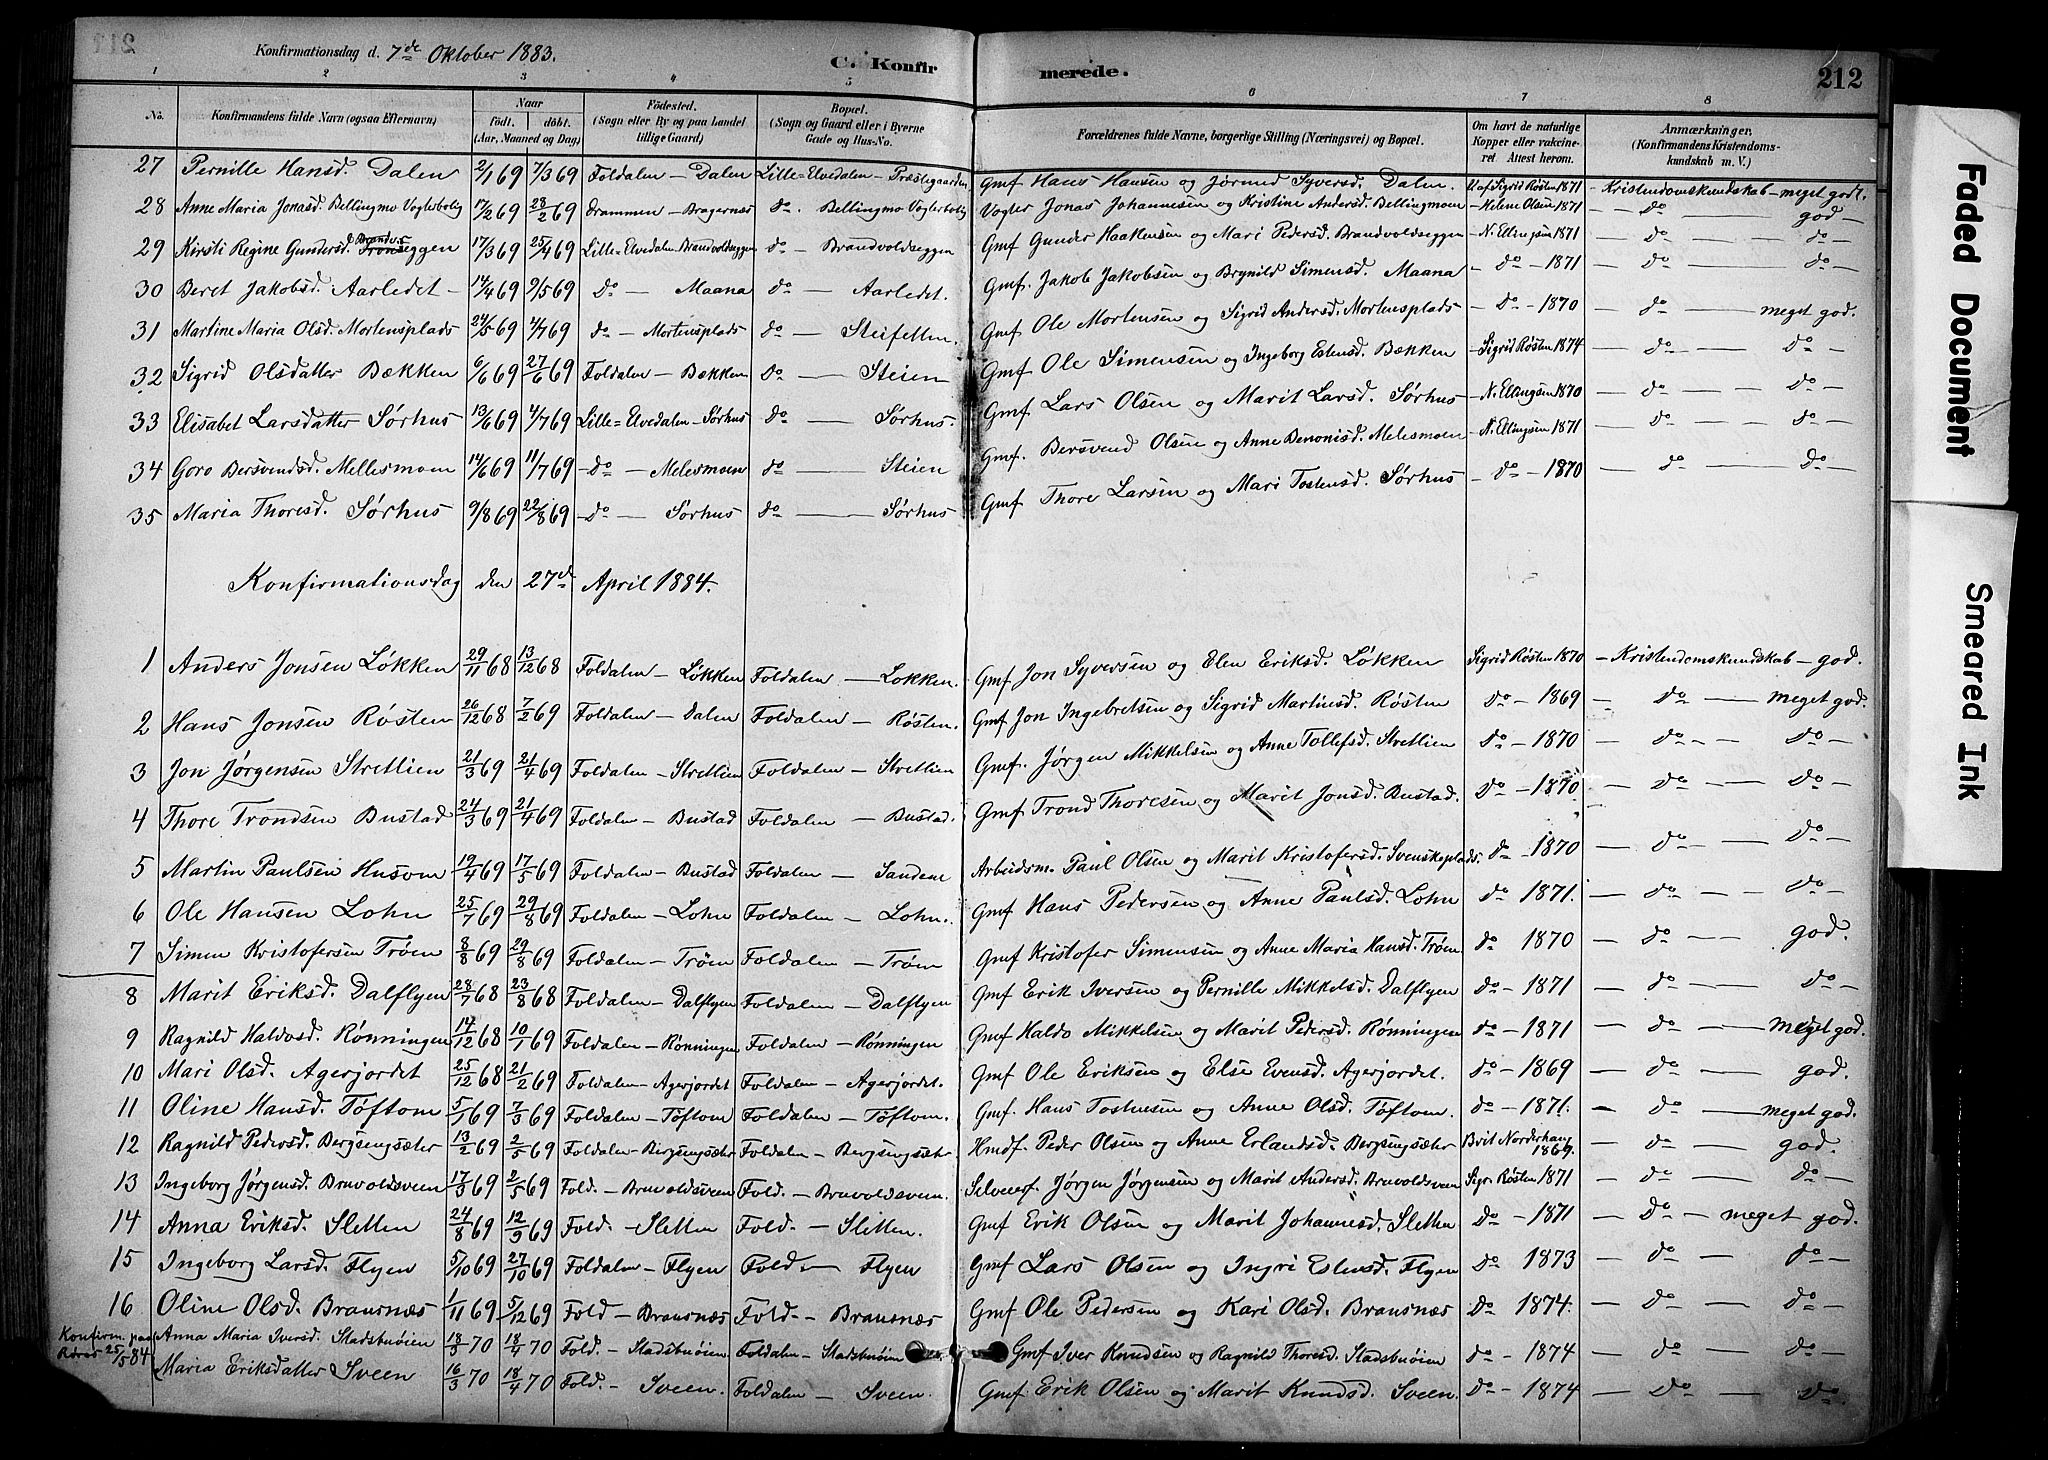 Konfirmationsdag d. 7de Oktober 1883. C. Konfirmerede. 212
1 2 3 4 5 6 7 8
No. | Konfirmandens fulde Navn (ogsaa Efternavn) | Naar født. døbt. (Aar, Maaned og Dag) | Fødested. (Sogn eller By og paa Landet tillige Gaard) | Bopæl. (Sogn og Gaard eller i Byerne Gade og Hus-No. | Forældrenes fulde Navne, borgerlige Stilling (Næringsvei) og Bopæl. | Om havt de naturlige Kopper eller vakcineret. Attest herom. | Anmærkninger. (Konfirmandens Kristendomskundskab m. V.)
27 Pernille Hansd. Dalen 2/1 69 7/3 69 Foldalen - Dalen Lille-Elvedalen - Præstegaarden Gmf Hans Hansen og Jørund Syversd. Dalen. U af Sigrid Røsten 1871 - Kristendomskundskab - meget godt.
28 Anne Maria Jonasd. Bellingmo Vogterbolig 17/2 69 28/2 69 Drammen - Bragernæs do. Bellingmo Vogterbolig Vogter Jonas Johannesen og Kristine Andersd. Bellingmoen - Helene Olsen 1871 - do - god -
29 Kirsti Regine Gundersd. Brandvoldseggen 17/3 69 25/4 69 Lille-Elvedalen Brandvoldseggen do - Brandvoldseggen Gmf Gunder Haakensen og Mari Pedersd. Brandvoldseggen - N. Ellingsen 1871 - do - do -
30 Beret Jakobsd. Aarledet - 14/4 69 9/5 69 do - Maana do - Aarledet. Gmf. Jakob Jakobsen og Brynild Simensd. Maana - do - 1871 - do - do -
31 Martine Maria Olsd. Mortensplads 24/5 69 4/7 69 do - Mortensplads do - Steifetten. Gmf Ole Mortensen og Sigrid Andersd. Mortensplads - do - 1870 - do - meget god.
32 Sigrid Olsdatter Bækken 6/6 69 27/6 69 Foldalen - Bækken do - Steien Gmf Ole Simensen og Ingeborg Estensd. Bækken - Sigrid Røsten 1874 - do - do -
33 Elisabet Larsdatter Sørhus 13/6 69 4/7 69 Lille-Elvedalen - Sørhus do - Sørhus. Gmf Lars Olsen og Marit Larsd. Sørhus - N. Ellingsen 1870 - do - do -
34 Goro Bersvendsd. Mellesmoen 14/6 69 11/7 69 - do - Melesmoen do - Steien Gmf. Bersvend Olsen og Anne Benonisd. Melesmoen - N. Ellingsen 1871 - do - do -
35 Maria Thoresd. Sørhus 9/8 69 22/8 69 - do - Sørhus do - Sørhus Gmf Thore Larsen og Mari Tostensd. Sørhus - do - 1870 - do - do -
Konfirmationsdag den 27de April 1884.
1 Anders Jonsen Løkken 29/11 68 13/12 68 Foldalen - Løkken Foldalen - Løkken. Gmf Jon Syversen og Elen Eriksd. Løkken Sigrid Røsten 1870 - Kristendomskundskab - god.
2 Hans Jonsen Røsten 26/12 68 7/2 69 Foldalen - Dalen Foldalen - Røsten. Gmf Jon Ingebretsen og Sigrid Martinusd. Røsten do - 1869 - do - meget god.
3 Jon Jørgensen Stretlien 21/3 69 21/4 69 Foldalen - Stretlien Foldalen - Stretlien Gmf. Jørgen Mikkelsen og Anne Tollefsd. Stretlien do - 1870 - do - do -
4 Thore Trondsen Bustad 24/3 69 21/4 69 Foldalen - Bustad Foldalen - Bustad. Gmf Trond Thoresen og Marit Jonsd. Bustad. do - 1870 - do - do -
5 Martin Paulsen Husom 19/4 69 17/5 69 Foldalen - Bustad Foldalen - Sandene Arbeidsm. Paul Olsen og Marit Kristofersd. Svenskeplads. do - 1870 - do - do -
6 Ole Hansen Lohn 25/7 69 29/8 69 Foldalen - Lohn Foldalen - Lohn. Gmf Hans Pedersen og Anne Paulsd. Lohn do 1871. - do - do -
7 Simen Kristofersen Trøen 8/8 69 29/8 69 Foldalen - Trøen Foldalen - Trøen Gmf Kristofer Simensen og Anne Maria Hansd. Trøen do 1870 - do - god.
8 Marit Eriksd. Dalflyen 28/7 68 23/8 68 Foldalen - Dalflyen Foldalen - Dalflyen Gmf Erik Iversen og Pernille Mikkelsd. Dalflyen do - 1871 - do - do -
9 Ragnild Haldosd. Rønningen 14/12 68 10/1 69 Foldalen - Rønningen Foldalen - Rønningen Gmf Haldo Mikkelsen og Marit Pedersd. Rønningen do - 1871 - do - meget god.
10 Mari Olsd. Agerjordet 25/12 68 21/2 69 Foldalen - Agerjordet Foldalen - Agerjordet. Gmf Ole Eriksen og Else Evensd. Agerjordet. do - 1869 - do - god.
11 Oline Hansd. Tøftom 5/1 69 7/3 69 Foldalen - Tøftom Foldalen - Tøftom. Gmf. Hans Tostensen og Anne Olsd. Tøftom. do - 1871. - do - meget god.
12 Ragnild Pedersd. Bergsengsæter 13/2 69 2/5 69 Foldalen - Bergsengsæter Foldalen - Bergsengsæter. Hmdf. Peder Olsen og Anne Erlandsd. Bergsengsæter Brit Norderhaug 1869. - do - god.
13 Ingeborg Jørgensd. Bruvoldsveen 17/3 69 2/5 69 Fold. - Bruvoldsveen Fold. - Bruvoldsveen. Selveierf. Jørgen Jørgensen og Marit Andersd. Bruvoldsveen Sigr. Røsten 1871 - do - do -
14 Anna Eriksd. Sletten 24/8 69 12/9 69 Fold. - Sletten Fold. - Sletten. Gmf Erik Olsen og Marit Johannesd. Sletten do - 1871 - do - meget god.
15 Ingeborg Larsd. Flyen 5/10 69 27/10 69 Foldalen - Flyen Fold. - Flyen Gmf Lars Olsen og Ingri Estensd. Flyen do 1873 - do - do -
16 Oline Olsd. Bransnæs 1/11 69 5/12 69 Fold - Bransnæs Fold. - Bransnæs Gmf Ole Pedersen og Kari Olsd. Bransnæs do 1874. - do - do -
Konfirm. paa Røros 25/5 84 Anna Maria Iversd. Stadsbuøien 18/3 70 18/4 70 Fold. - Stadsbuøien Foldalen - Stadsbuøien Gmf Iver Knudsen og Ragnild Thoresd. Stadsbuøien do - 1874 - do - do -
Maria Eriksdatter Sveen 16/3 70 18/4 70 Fold. - Sveen. Foldalen - Sveen. Gmf. Erik Olsen og Marit Knudsd. Sveen. do - 1874 - do - do -
Faded Document
Smeared Ink